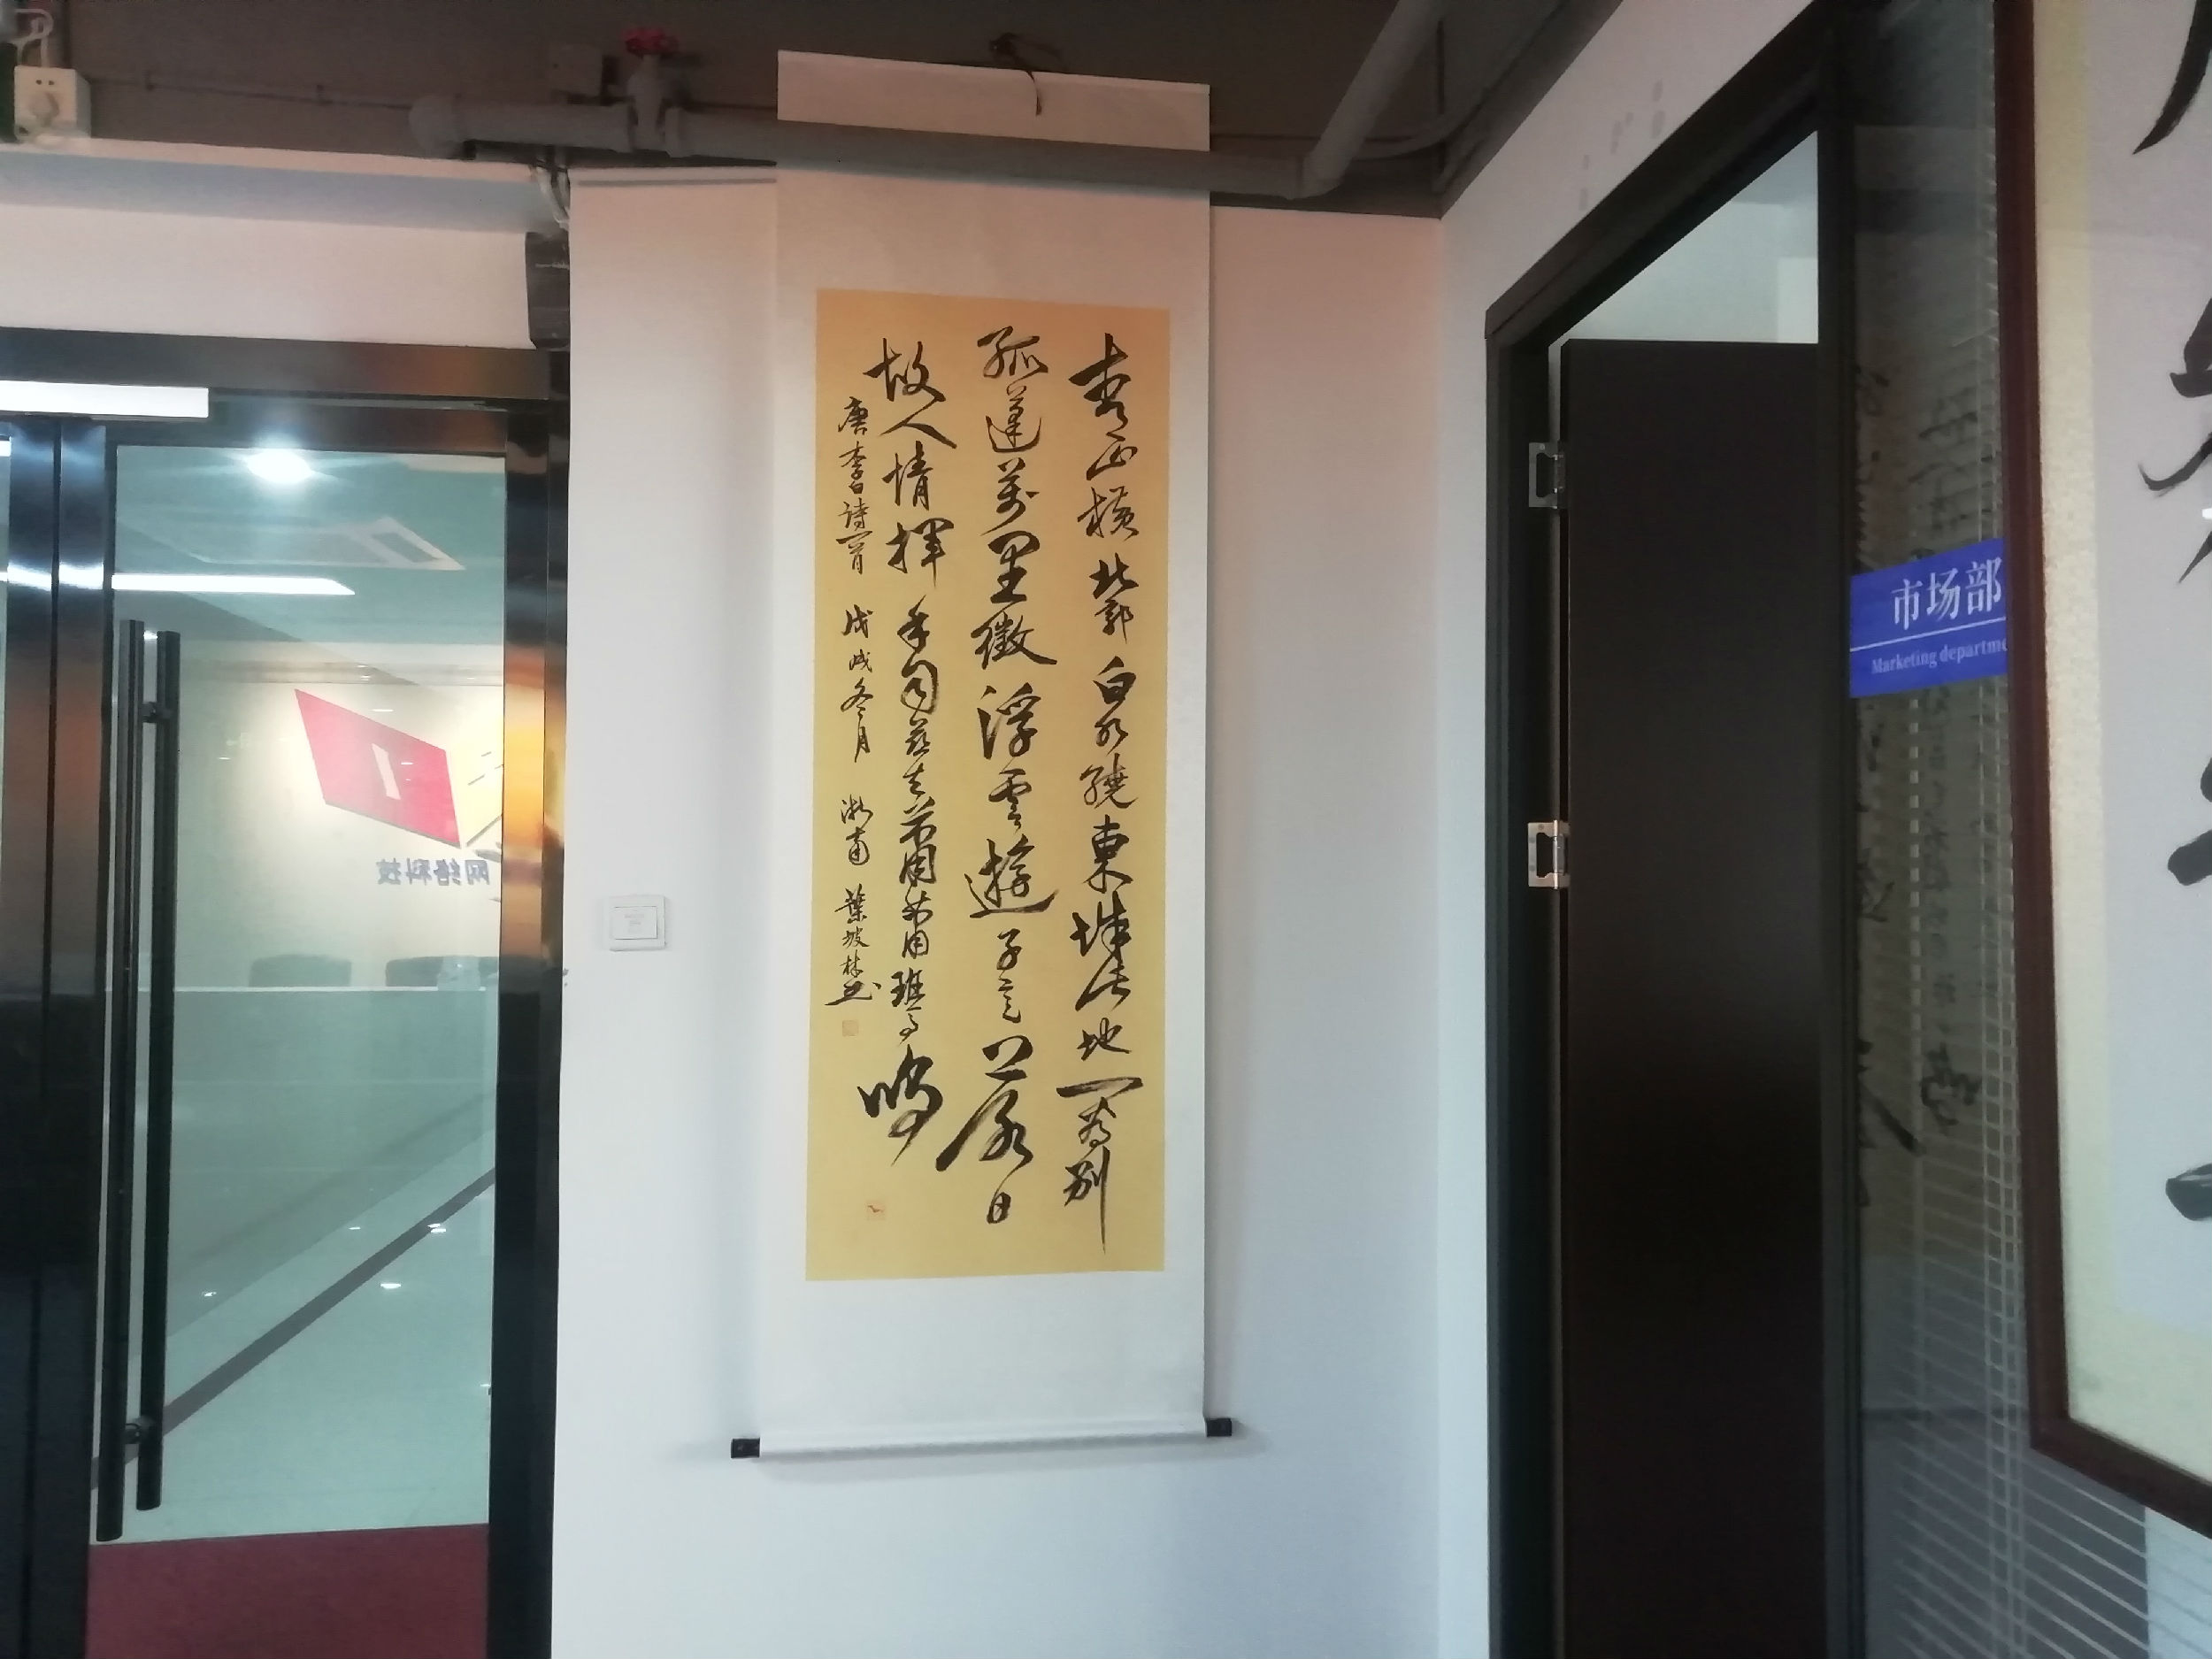 青山橫北郭白水繞東城此地一為別
孤蓬萬里徵浮雲遊子意落日
故人情揮手自茲去蕭蕭班馬鳴
唐李白詩一首 戊戌冬月 浙南 葉坡林书
市场部
Marketing departme
网络科技